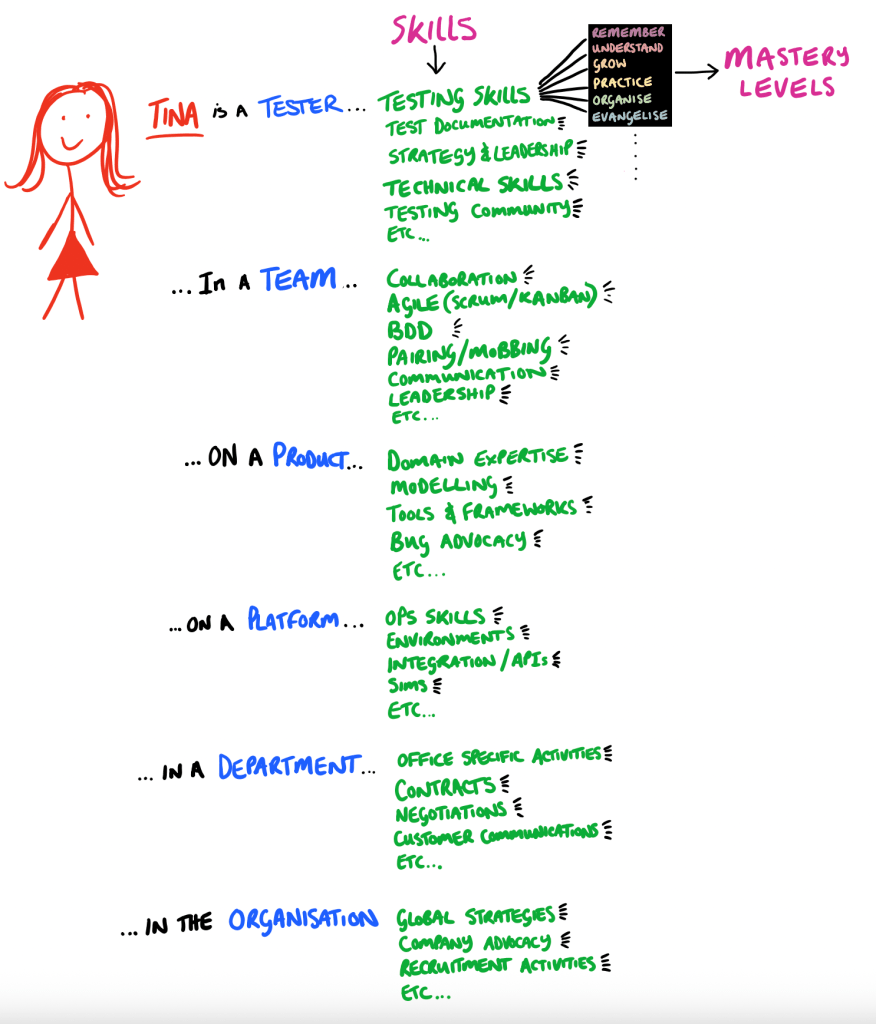 SKILLS
REMEMBER
UNDERSTAND
GROW
PRACTICE
ORGANISE
EVANGELISE
MASTERY
LEVELS
TINA is A TESTER...
TESTING SKILLS
TEST DOCUMENTATION
STRATEGY & LEADERSHIP
TECHNICAL SKILLS
TESTING COMMUNITY
ETC...
...In A TEAM...
COLLABORATION
AGILE (SCRUM/KANBAN)
BDD
PAIRING/MOBBING
COMMUNICATION
LEADERSHIP
ETC...
...ON A PRODUCT...
DOMAIN EXPERTISE
MODELLING
TOOLS & FRAMEWORKS
BUG ADVOCACY
ETC...
...ON A PLATFORM...
OPS SKILLS
ENVIRONMENTS
INTEGRATION/APIs
SIMS
ETC...
...IN A DEPARTMENT...
OFFICE SPECIFIC ACTIVITIES
CONTRACTS
NEGOTIATIONS
CUSTOMER COMMUNICATIONS
ETC...
...IN THE ORGANISATION
GLOBAL STRATEGIES
COMPANY ADVOCACY
RECRUITMENT ACTIVITIES
ETC...